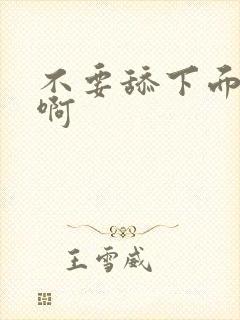 不要舔下而
啊
王雪威